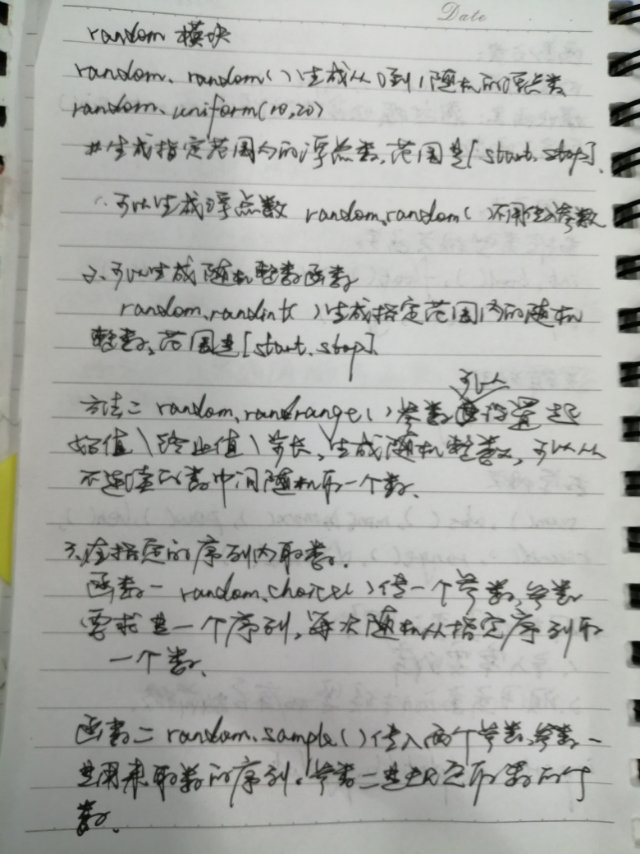 Date
random 模块
random.random()生成从0到1随机的浮点数
random.uniform(10,20)
#生成指定范围内的浮点数,范围是[start,stop].
1.可以生成浮点数 random.random()不用传入参数
2.可以生成随机整数函数
random.randint()生成指定范围内的随机
整数,范围是[start,stop]
可以
方法二 random.randrange()参数设置起
始值\终止值\步长,生成随机整数,可以从
不连续的数中间随机取一个数.
3.在指定的序列内取数.
函数一 random.choice()传一个参数,参数
要求是一个序列,每次随机从指定序列取
一个数.
函数二 random.sample()传入两个参数,参数一
是用来取数的序列.参数二是规定取数的个
数.